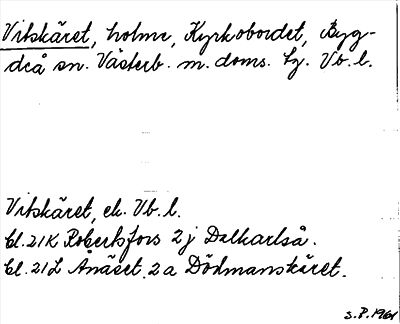 Vitskäret, holme, Kyrkobordet, Byg-
deå sn. Västerb. m. doms. tg. Vb. l.
Vitskäret, ek. Vb. l.
bl. 21K Robertsfors 2j Dalkarlså.
bl. 21L Ånäset. 2a Dödmanskäret.
S.P. 1961